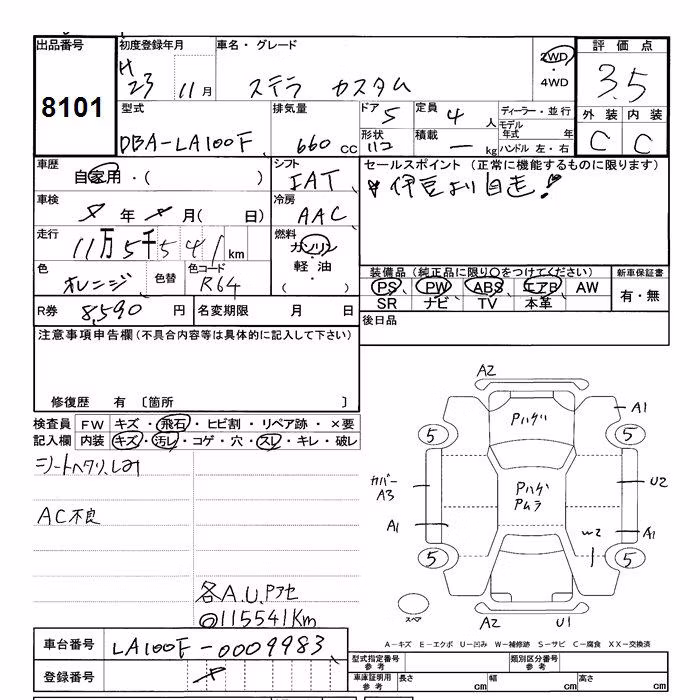 出品番号
8101
初度登録年月
H
23 11月
車名・グレード
ステラ カスタム
2WD
・
4WD
評価点
3.5
外装 内装
C C
型式
DBA-LA100F
排気量
660 cc
ドア 5
形状
定員 4 人
積載 — kg
ディーラー・並行
モデル
年式 年
ハンドル 左・右
車歴
自家用・( )
シフト
IAT
セールスポイント (正常に機能するものに限ります)
伊豆より自走!
車検
年 月( 日)
冷房
AAC
走行
11万5千541km
燃料
ガソリン
・
軽油
色
オレンジ
色替
色コード
R64
装備品 (純正品に限り○をつけてください)
PS PW ABS エアB AW
SR ナビ TV 本革
新車保証書
有・無
R券 8,590 円
名変期限 月 日
後日品
注意事項申告欄 (不具合内容等は具体的に記入して下さい)
修復歴 有 〔箇所 〕
検査員
記入欄
FW キズ・飛石・ヒビ割・リペア跡・×要
内装 キズ・汚レ・コゲ・穴・スレ・キレ・破レ
シートヘタリ、しみ
AC不良
各A.U.Pアセ
◎115541Km
A2
Pハゲ
A1
5 5
カバー
A3
Pハゲ
Pムラ
U2
A1
W2
A1
5 5
スペア
A2 U1
A-キズ E-エクボ U-凹み W-補修跡 S-サビ C-腐食 XX-交換済
車台番号 LA100F-0009983
登録番号
型式指定番号
参考
類別区分番号
参考
車庫証明用
参考
長さ cm
幅 cm
高さ cm